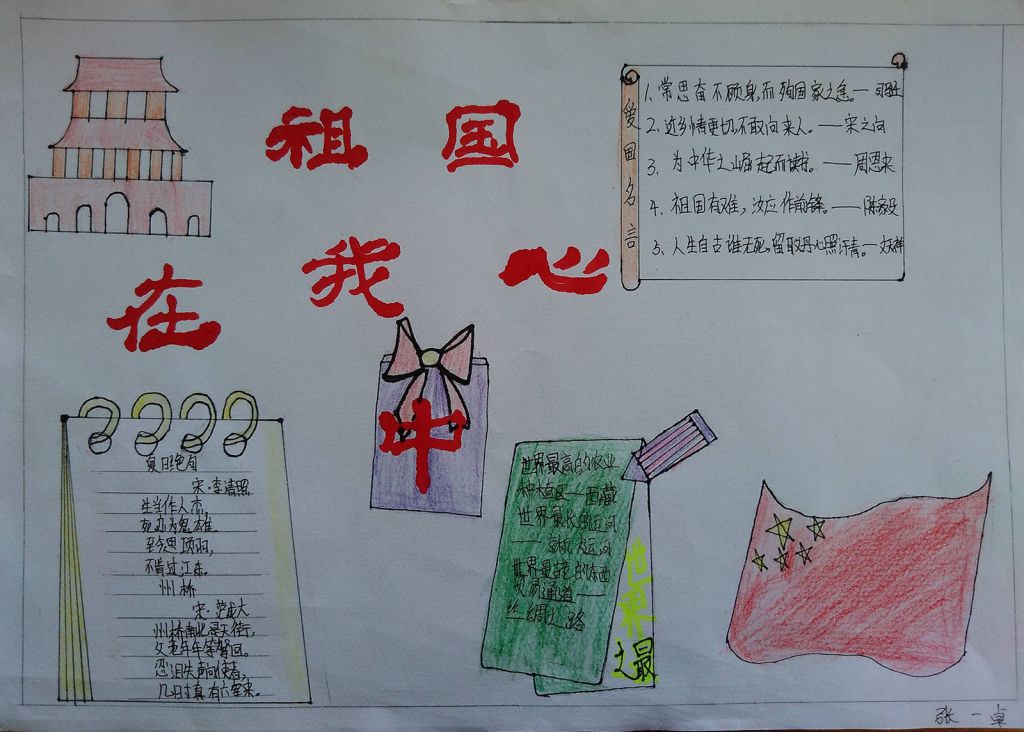 祖 国
在 我 心
中
爱国名言
1、常思奋不顾身,而殉国家之急。—司马迁
2、近乡情更切,不敢问来人。——宋之问
3、为中华之崛起而读书。——周恩来
4、祖国有难,汝应作前锋。——陈毅
5、人生自古谁无死,留取丹心照汗青。—文天祥
夏日绝句
宋·李清照
生当作人杰,
死亦为鬼雄。
至今思项羽,
不肯过江东。
州桥
宋·范成大
州桥南北是天街,
父老年年等驾回。
忍泪失声问使者,
几时真有六军来。
世界最高的农业
种植区——西藏
世界最长的运河
——京杭大运河
世界最古老的东西
贸易通道——
丝绸之路
世界
之最
张一卓